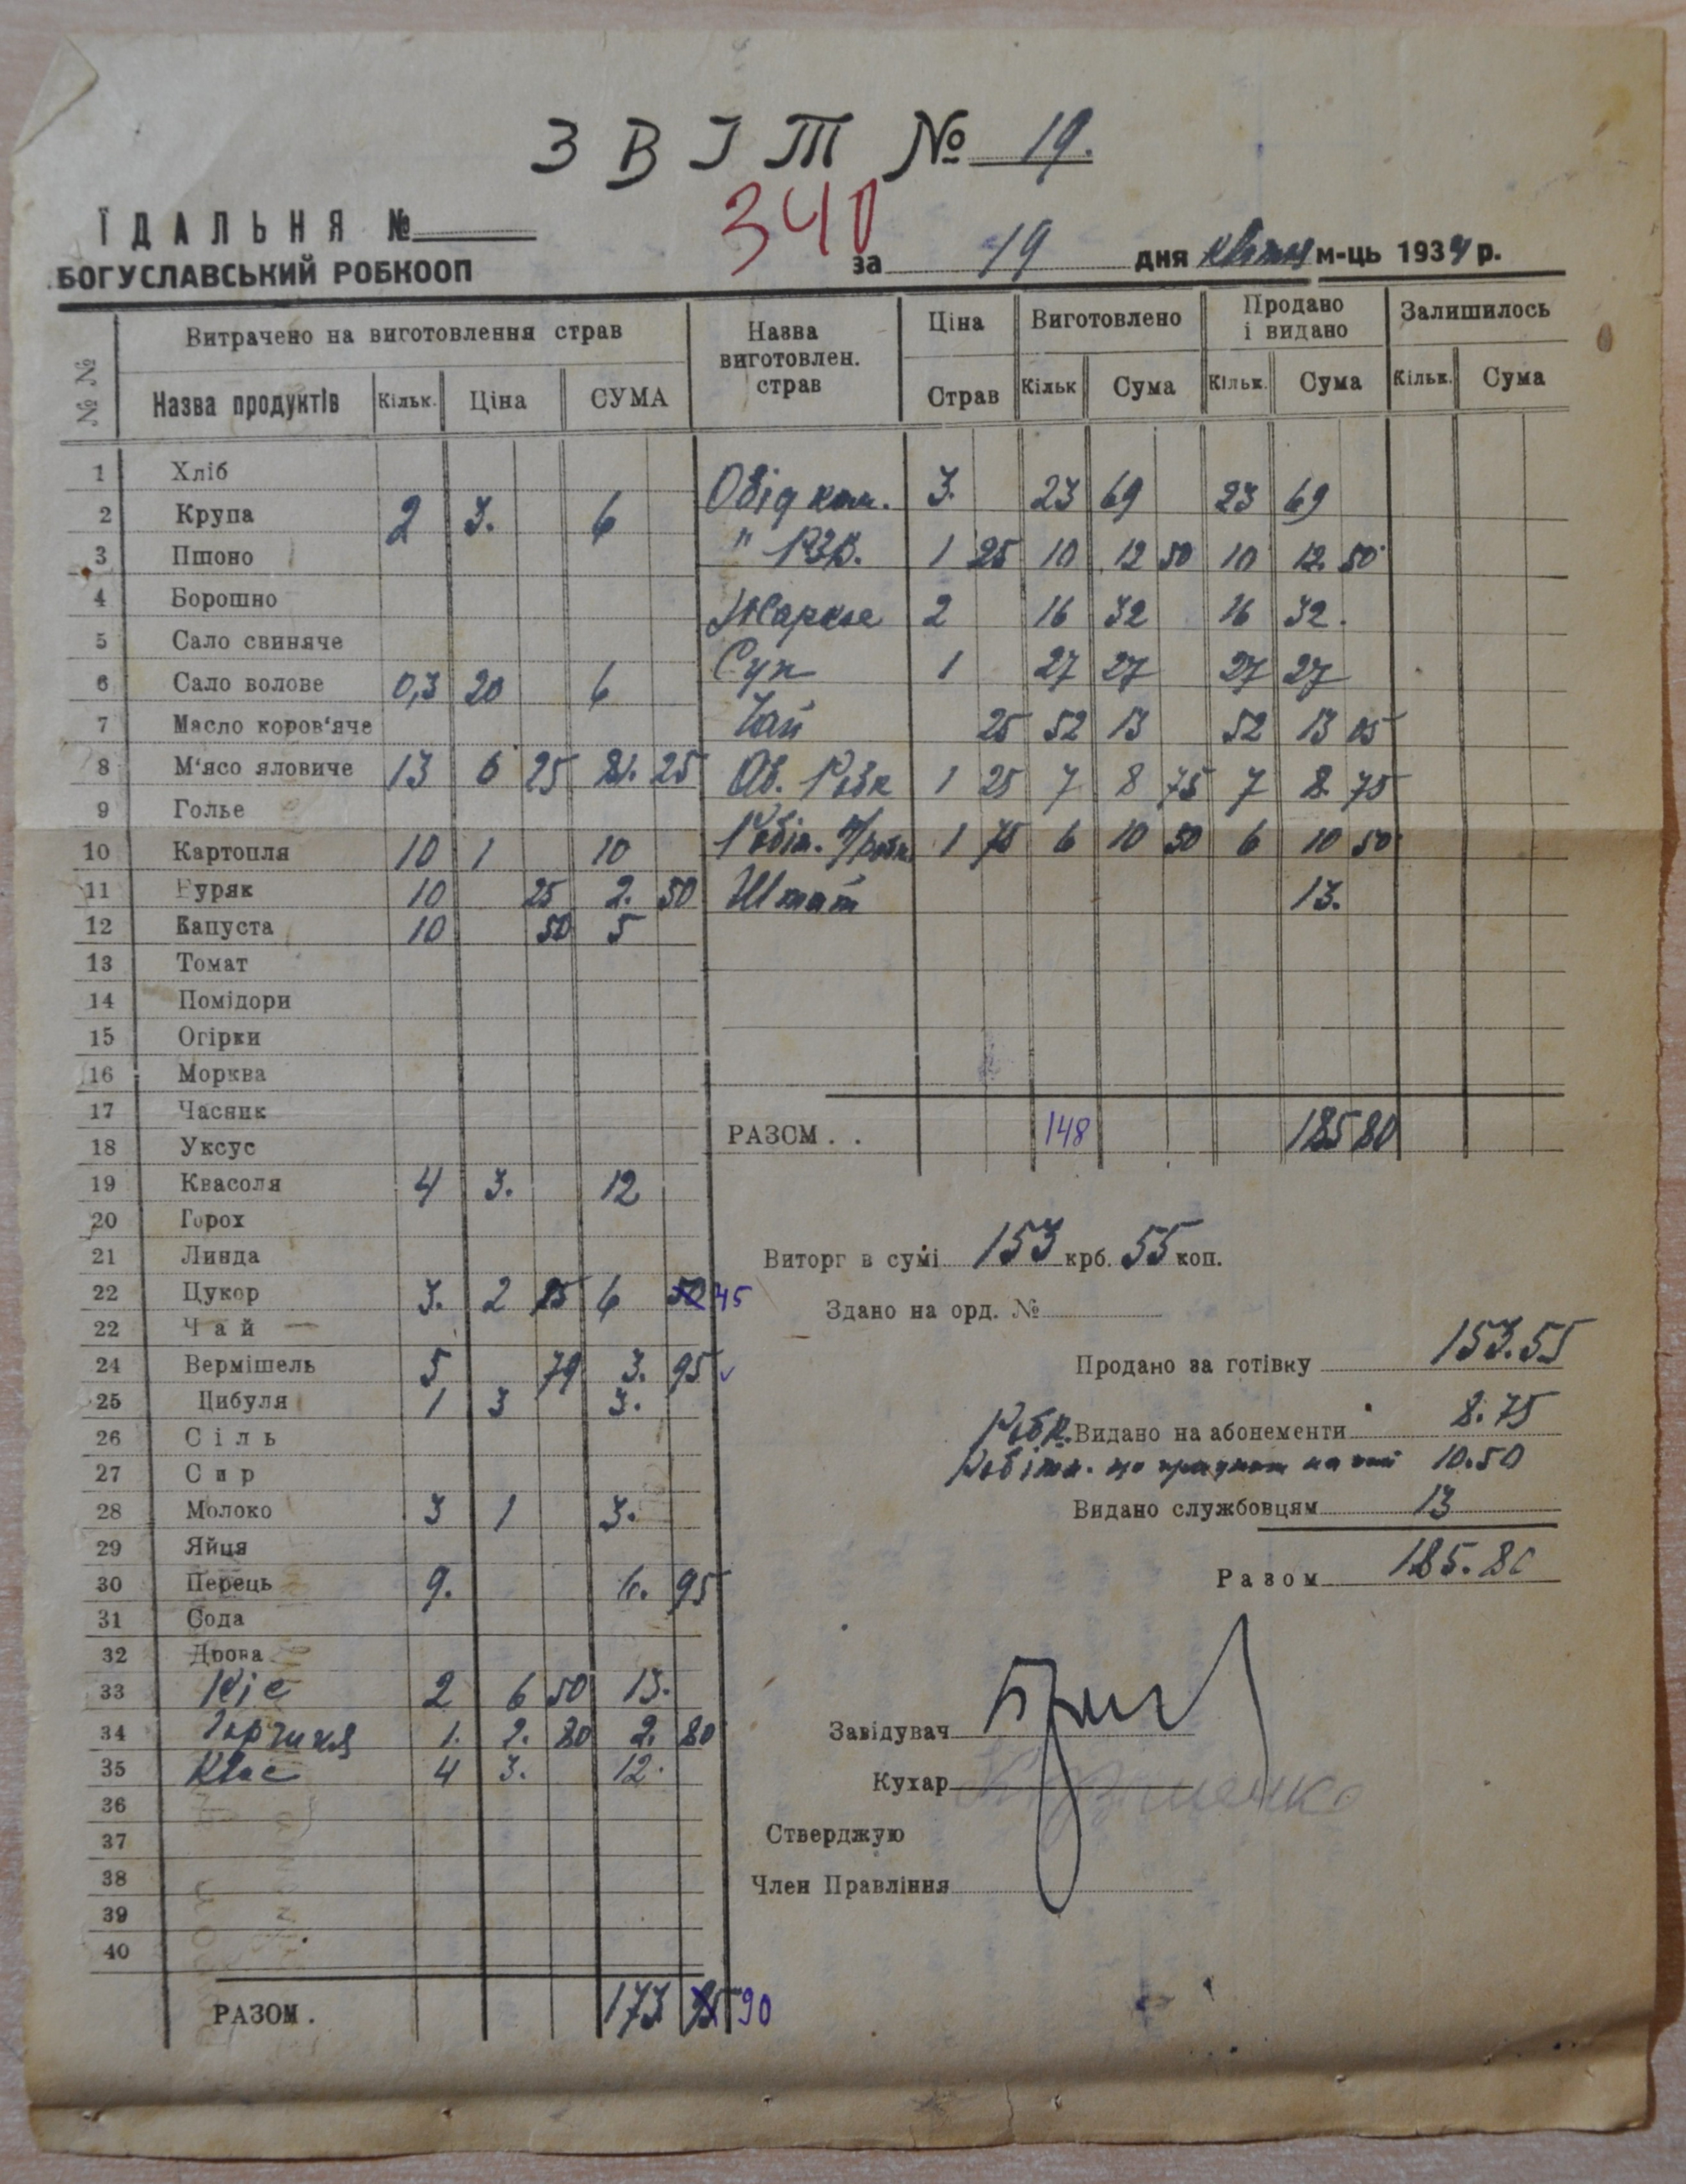 ЗВІТ № 19.
340
ЇДАЛЬНЯ №
БОГУСЛАВСЬКИЙ РОБКООП
за 19 дня м-ць 1934 р.
№ № Витрачено на виготовлення страв Назва виготовлен. страв Ціна Виготовлено Продано і видано Залишилось
Назва продуктів Кільк. Ціна СУМА Страв Кільк Сума Кільк. Сума Кільк. Сума
1 Хліб
Обід ком. 3. 23 69 23 69
2 Крупа 2 3. 6
3 Пшоно
" РЗК. 1 25 10 12 50 10 12. 50
4 Борошно
Жаркое 2 16 32 16 32.
5 Сало свиняче
Суп 1 27 27 27 27
6 Сало волове 0,3 20 6
7 Масло коров'яче
Чай 25 52 13 52 13 05
8 М'ясо яловиче 13 6 25 81. 25
Об. Робк 1 25 7 8 75 7 8. 75
9 Голье
Робіт. 1 75 6 10 50 6 10 50
10 Картопля 10 1 10
11 Буряк 10 25 2. 50
Штат 13.
12 Капуста 10 50 5
13 Томат
14 Помідори
15 Огірки
16 Морква
17 Часник
РАЗОМ . . 148 185 80
18 Уксус
19 Квасоля 4 3. 12
20 Горох
21 Линда
Виторг в сумі 153 крб. 55 коп.
22 Цукор 3. 2 15 6 50 45
Здано на орд. №
22 Чай
24 Вермішель 5 79 3. 95
Продано за готівку 153.55
25 Цибуля 1 3 3.
Робк. Видано на абонементи 8.75
26 Сіль
Робітн. що на 10.50
27 Сир
28 Молоко 3 1 3.
Видано службовцям 13
29 Яйця
Разом 185.80
30 Перець 9. 95
31 Сода
32 Дрова
33 Ріс 2 6 50 13.
34 Горчиця 1. 2. 80 2. 80
Завідувач
35 Квас 4 3. 12.
Кухар
36
37
Стверджую
38
Член Правління
39
40
РАЗОМ. 173 95 90